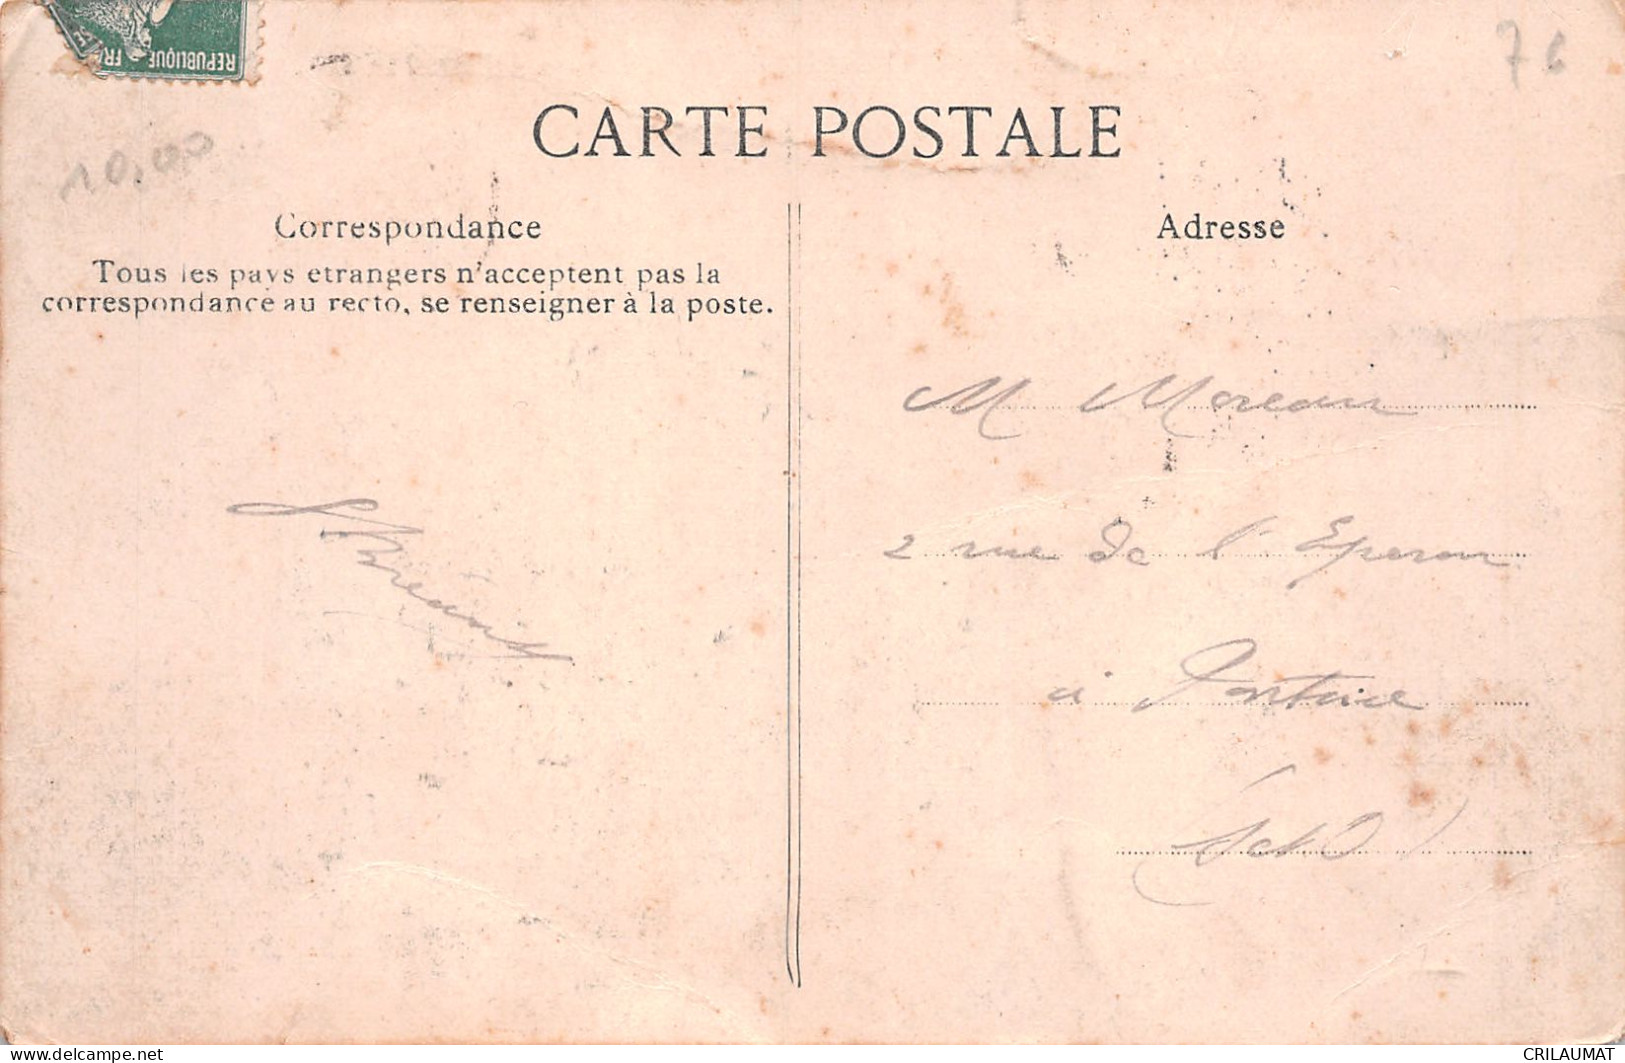 REPUBLIQUE FRA
76
10,00
CARTE POSTALE
Correspondance
Adresse
Tous les pays etrangers n'acceptent pas la
correspondance au recto, se renseigner à la poste.
M Moreau
2 rue de l'Eperon
à Pontoise
(S et O)
CRILAUMAT